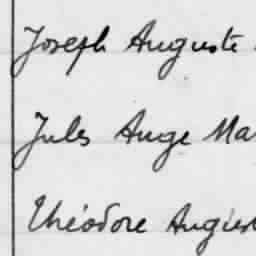 Joseph Auguste
Jules Ange Ma
Théodore Augus